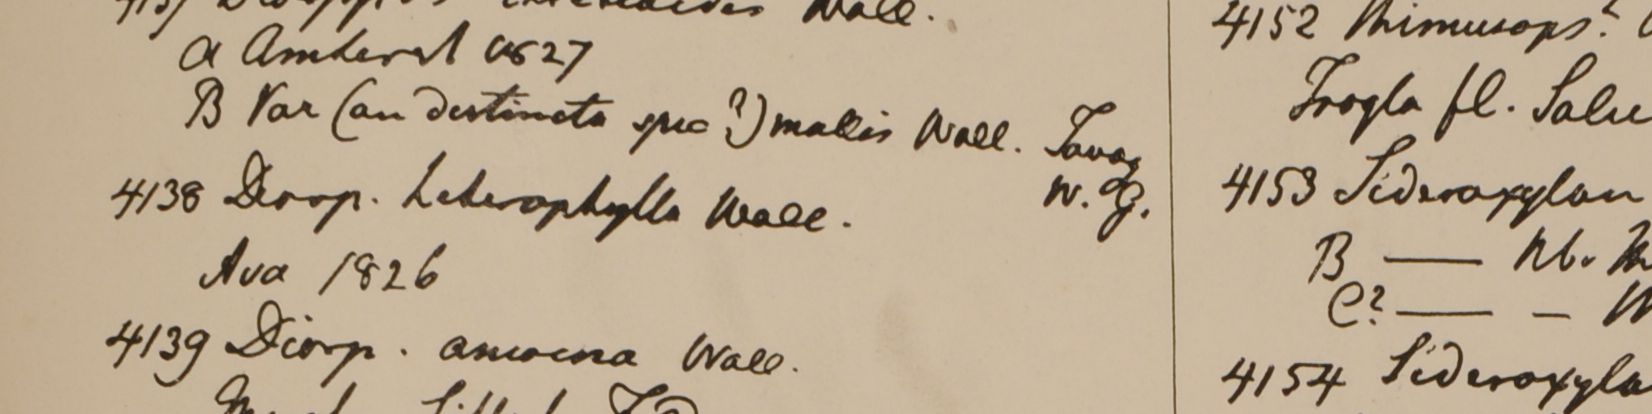 4137 Wall.
a Amherst 1827
B Var (an distincta spec?) mollis Wall. Tavoy
W. G.
4138 Diosp. heterophylla Wall.
Ava 1826
4139 Diosp. amoena Wall.
4152 Mimusops?
fl.
4153 Sideroxylon
B —— Hb.
C? —— —
4154